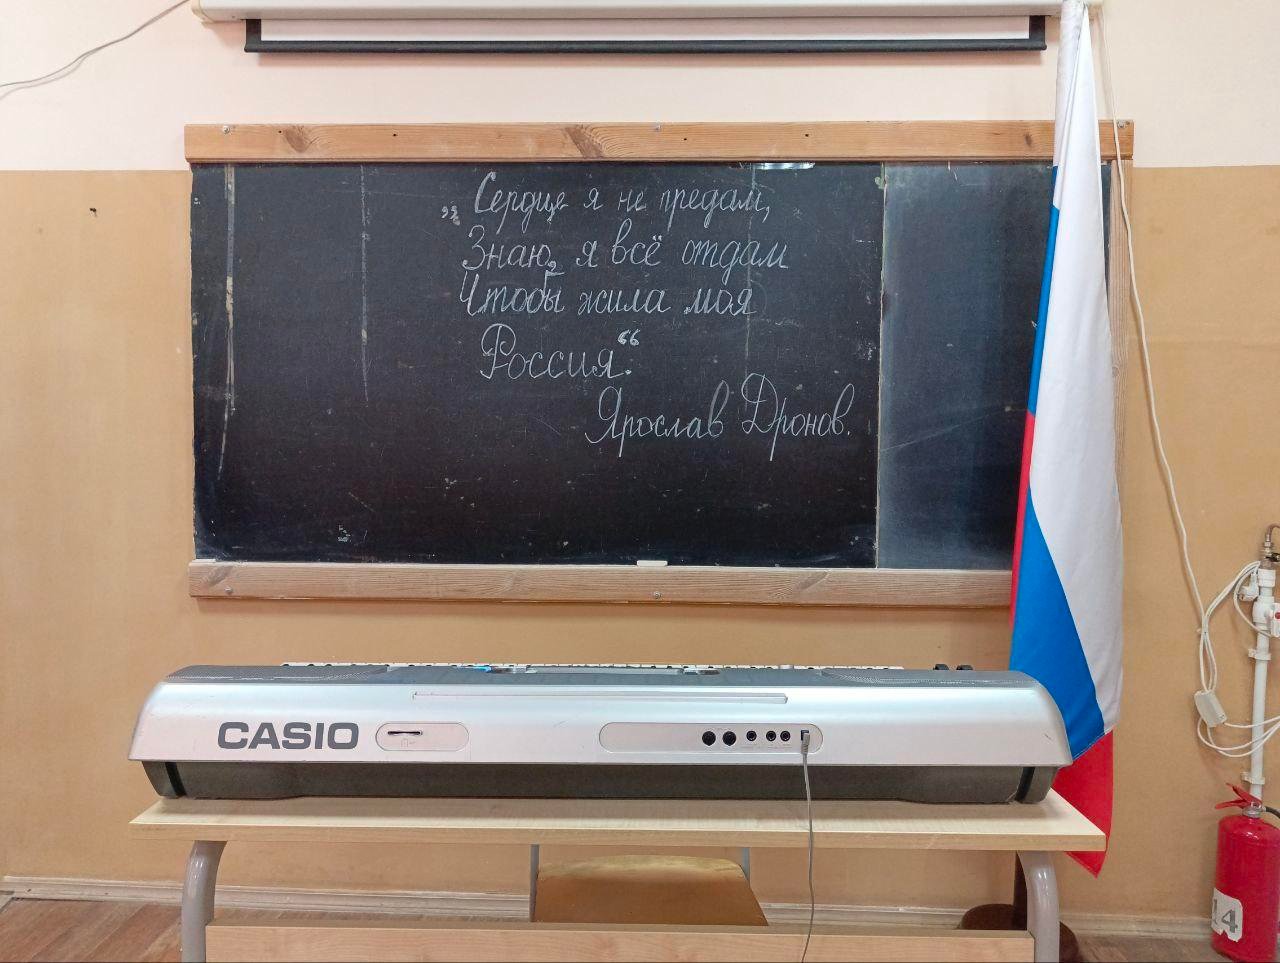 „Сердце я не предам,
Знаю, я всё отдам
Чтобы жила моя
Россия“.
Ярослав Дронов.
CASIO
14